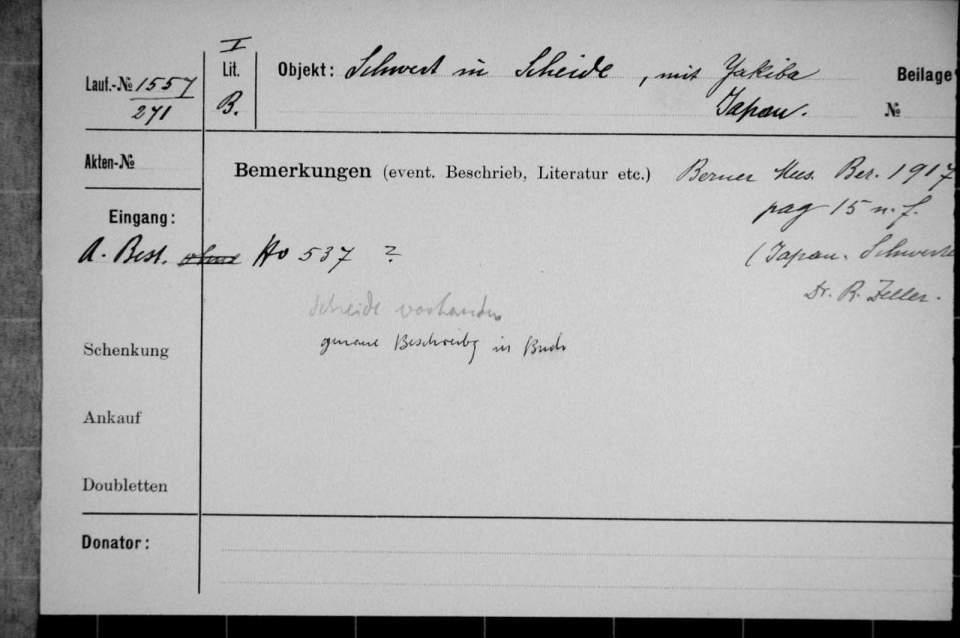 Lauf.-№ 1557
271
I
Lit.
B.
Objekt: Schwert in Scheide, mit Yakiba
Japan.
Beilage
№
Akten-№
Bemerkungen (event. Beschrieb, Literatur etc.) Berner Mus. Ber. 1917
pag 15 u. f.
(Japan. Schwerte
Dr. R. Zeller.
Eingang:
A. Best. ohne No 537 ?
Scheide vorhanden
genaue Beschreibg in Buch
Schenkung
Ankauf
Doubletten
Donator: